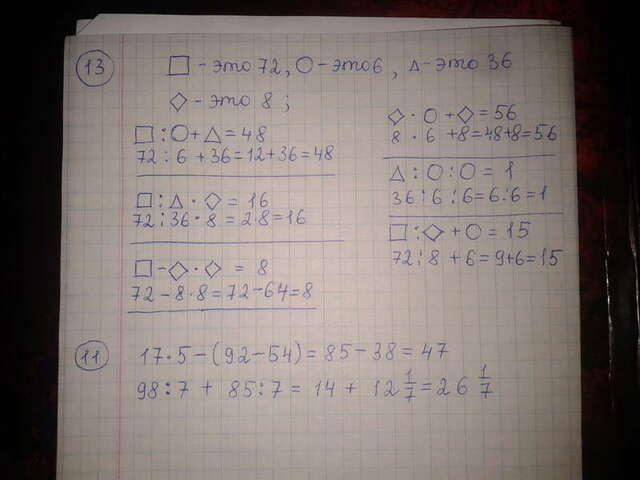 13
□ - это 72, ○ - это 6, △ - это 36
◇ - это 8;
□ : ○ + △ = 48
72 : 6 + 36 = 12 + 36 = 48
□ : △ · ◇ = 16
72 : 36 · 8 = 2·8 = 16
□ - ◇ · ◇ = 8
72 - 8·8 = 72 - 64 = 8
◇ · ○ + ◇ = 56
8 · 6 + 8 = 48 + 8 = 56
△ : ○ : ○ = 1
36 : 6 : 6 = 6 : 6 = 1
□ : ◇ + ○ = 15
72 : 8 + 6 = 9 + 6 = 15
11
17·5 - (92 - 54) = 85 - 38 = 47
98 : 7 + 85 : 7 = 14 + 12 1/7 = 26 1/7